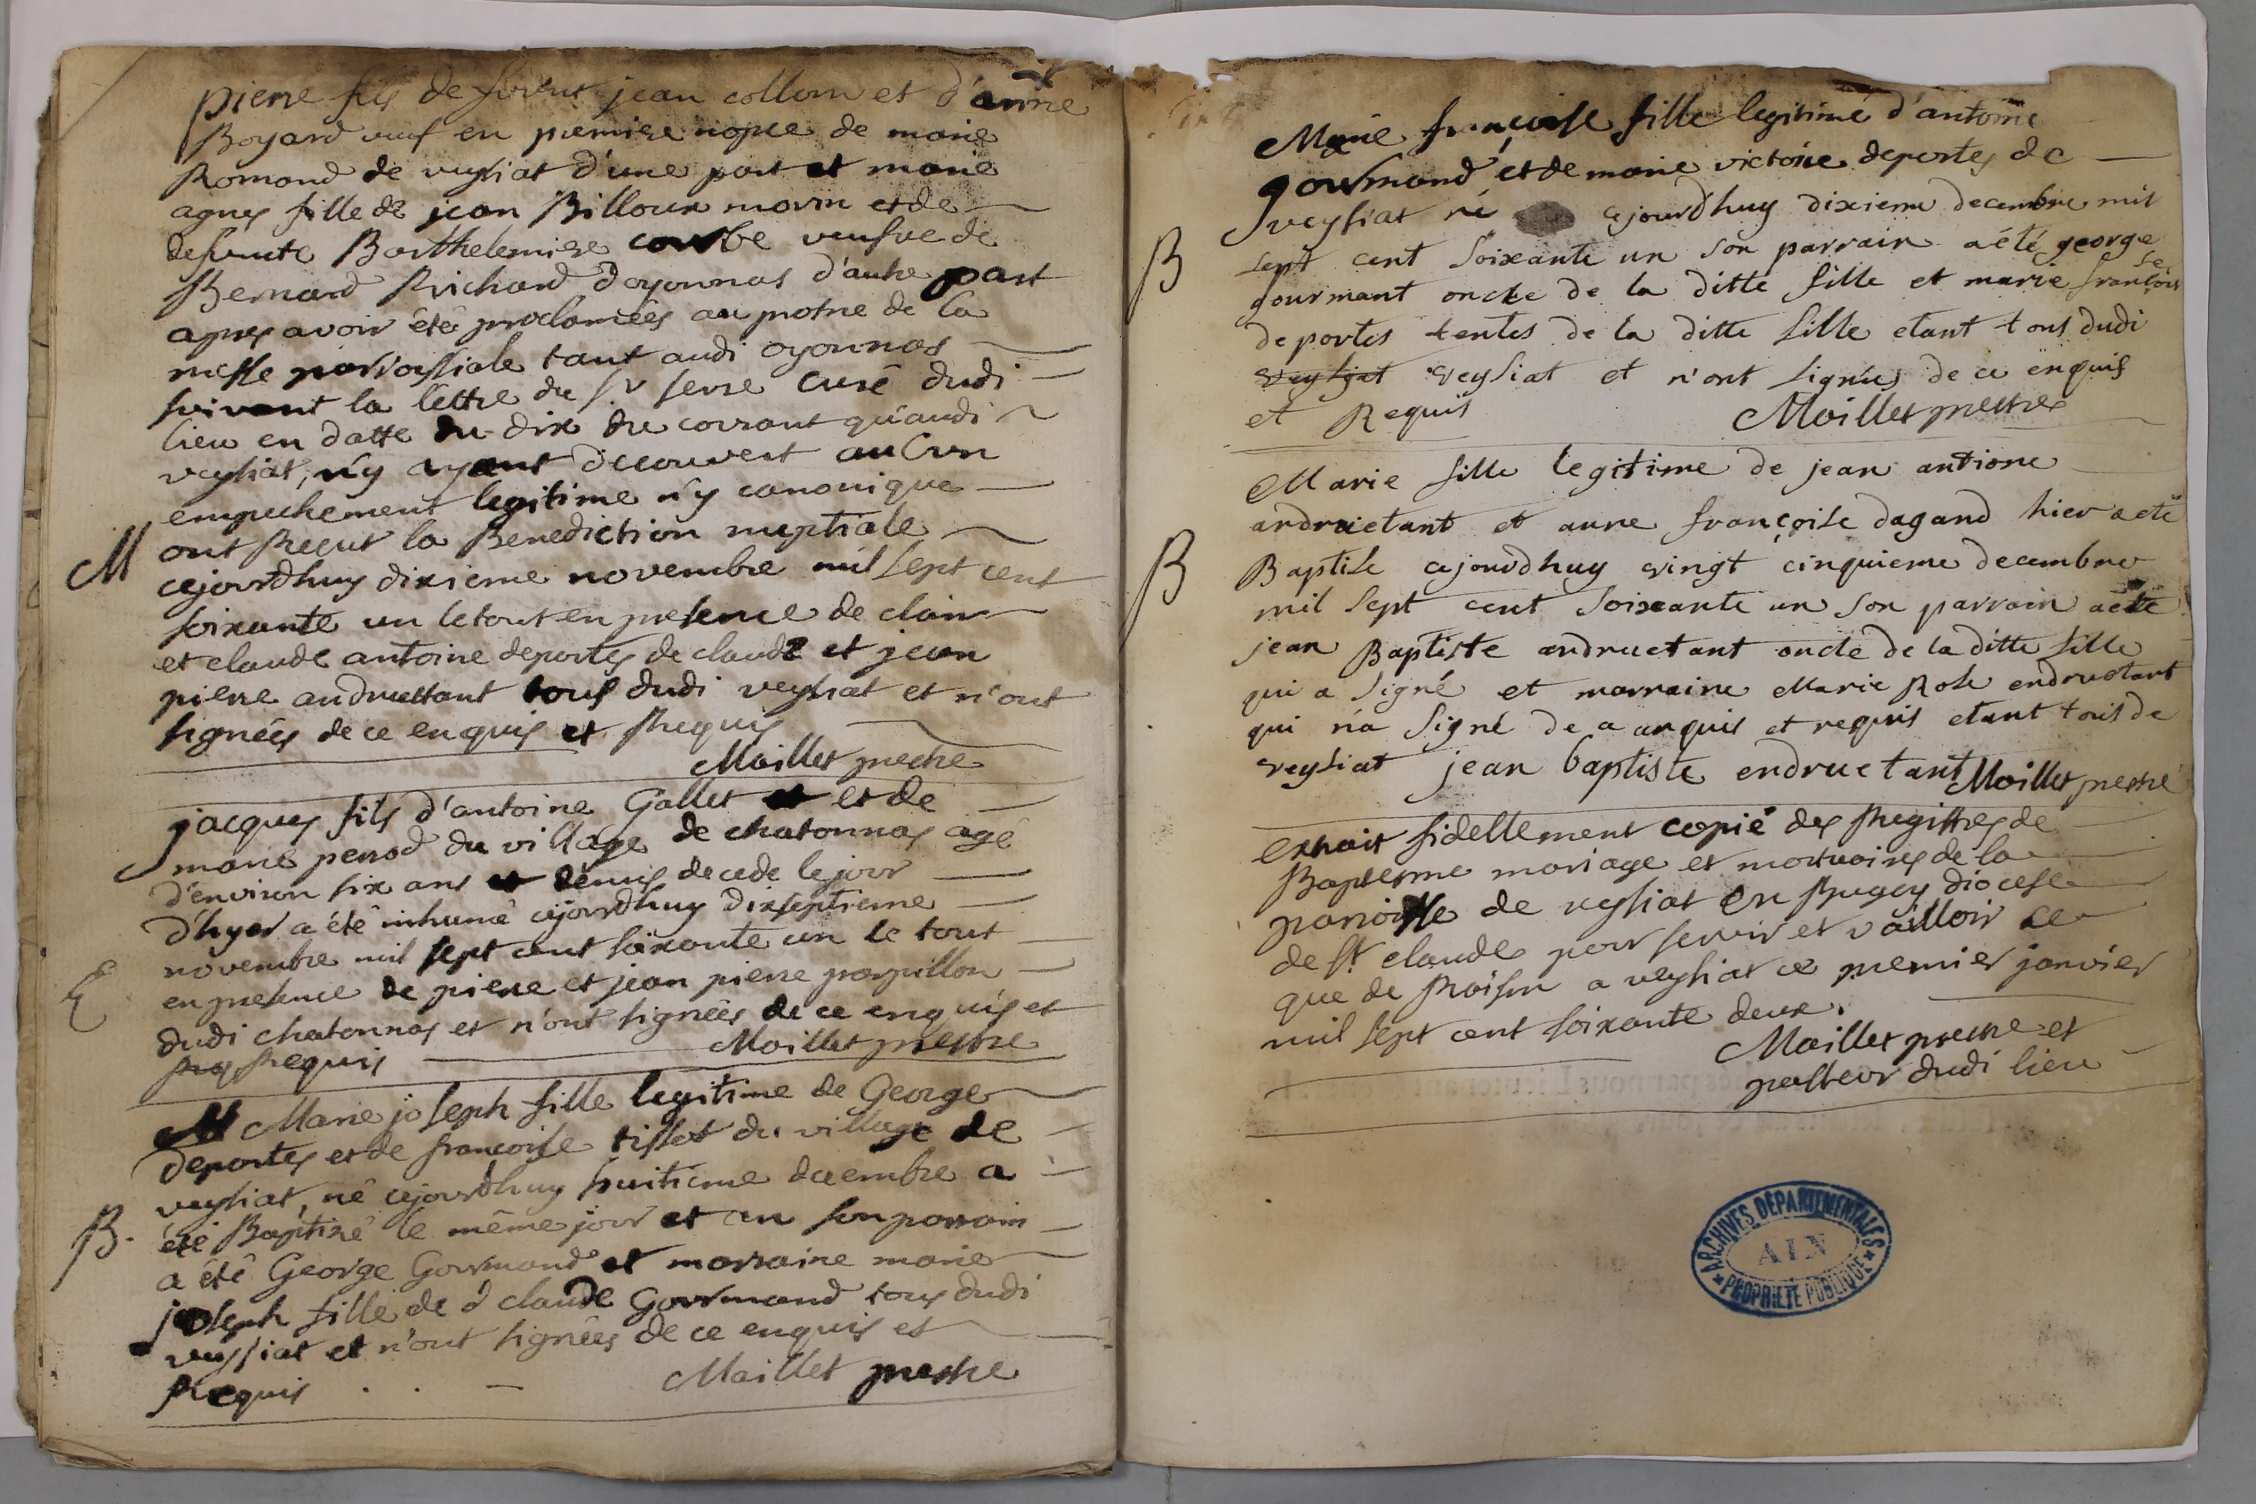 pierre fils de furent jean collom et d'anne
Boyard veuf en premiere nopce de marie
Romand de veysiat d'une part et marie
agnes fille de jean Billoux morin et de
defuncte Barthelemise courbe veufve de
Bernard Richard d'oyonnas d'autre part
apres avoir été proclamées au prosne de la
messe parroissiale tant audi oyonnas
suivant la lettre du Sr serre curé dudi
lieu en datte du dix du corrant qu'audi
veysiat, n'y ayant decouvert aucun
empechement legitime n'y canonique
M
ont Reçut la Benediction nuptiale
cejourdhuy dixieme novembre mil sept cent
soixante un le tout en presence de clair
et claude antoine deportes de claude et jean
pierre andruettant tous dudi veysiat et n'ont
signées de ce enquis et Requis
Maillet prestre
jacques fils d'antoine Gallet et et de
marie perrod du village de chatonnas agé
d'environ six ans et demis decede le jour
d'hyer a été inhumé cejourdhuy dixseptieme
novembre mil sept cent soixante un le tout
E
en presence de pierre et jean pierre parpillon
dudi chatonnas et n'ont signées de ce enquis et
Requis
Maillet prestre
M Marie joseph fille legitime de George
deportes et de francoise tissot du village de
veysiat, né cejourdhuy huitieme decembre a
B.
été Baptizé le même jour et an son parrain
a été George Gourmand et marraine marie
joseph fille de d claude Gourmand tous dudi
veysiat et n'ont signées de ce enquis et
Requis . . — Maillet prestre
Marie françoise fille legitime d'antoine
gourmand et de marie victoire deportes de
veysiat né cejourdhuy dixieme decembre mil
B
sept cent soixante un son parrain a été george
gourmant oncle de la ditte fille et marie françoise
deportes tentes de la ditte fille etant tous dudi
veysiat veysiat et n'ont signées de ce enquis
et Requis Maillet prestre
Marie fille legitime de jean antione
andruetant et anne françoise dagand hier a eté
B
Baptise cejourdhuy vingt cinquieme decembre
mil sept cent soixante un son parrain a eté
jean Baptiste andruetant oncle de la ditte fille
qui a signé et marraine Marie Rose endruetant
qui n'a signé de a anquis et requis etant tous de
veysiat jean baptiste endruetant Maillet prestre
extrait fidellement copié des Registres de
Baptesme mariage et mortuaires de la
parroisse de veysiat en Bugey diocese
de St claude pour servir et vailloir ce
que de Raison a veysiat ce premier janvier
mil sept cent soixante deux.
Maillet prestre et
pasteur dudi lieu
ARCHIVES DÉPARTEMENTALES
AIN
PROPRIÉTÉ PUBLIQUE